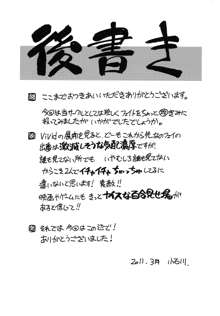 後書き
ここまでおつきあいいただきありがとうございます。
今回は当サークルとしては珍しくフェイトをちょっと
載ってみましたが いかがでしたでしょうか。
Vividの展開を見ると、どーもこれから先なのフェイの
出番は激減しそうな気配濃厚ですが
誰も見てない所でも いやむしろ誰も見てない
からこそ2人でイチャイチャちゅっちゅしてるに
違いないと思います! 素敵!!
映画やゲームにもきっとナイスな百合見せ場が
あると信じて!!
それでは、今回はこの辺で!
ありがとうございました!
2011.3月 小石川